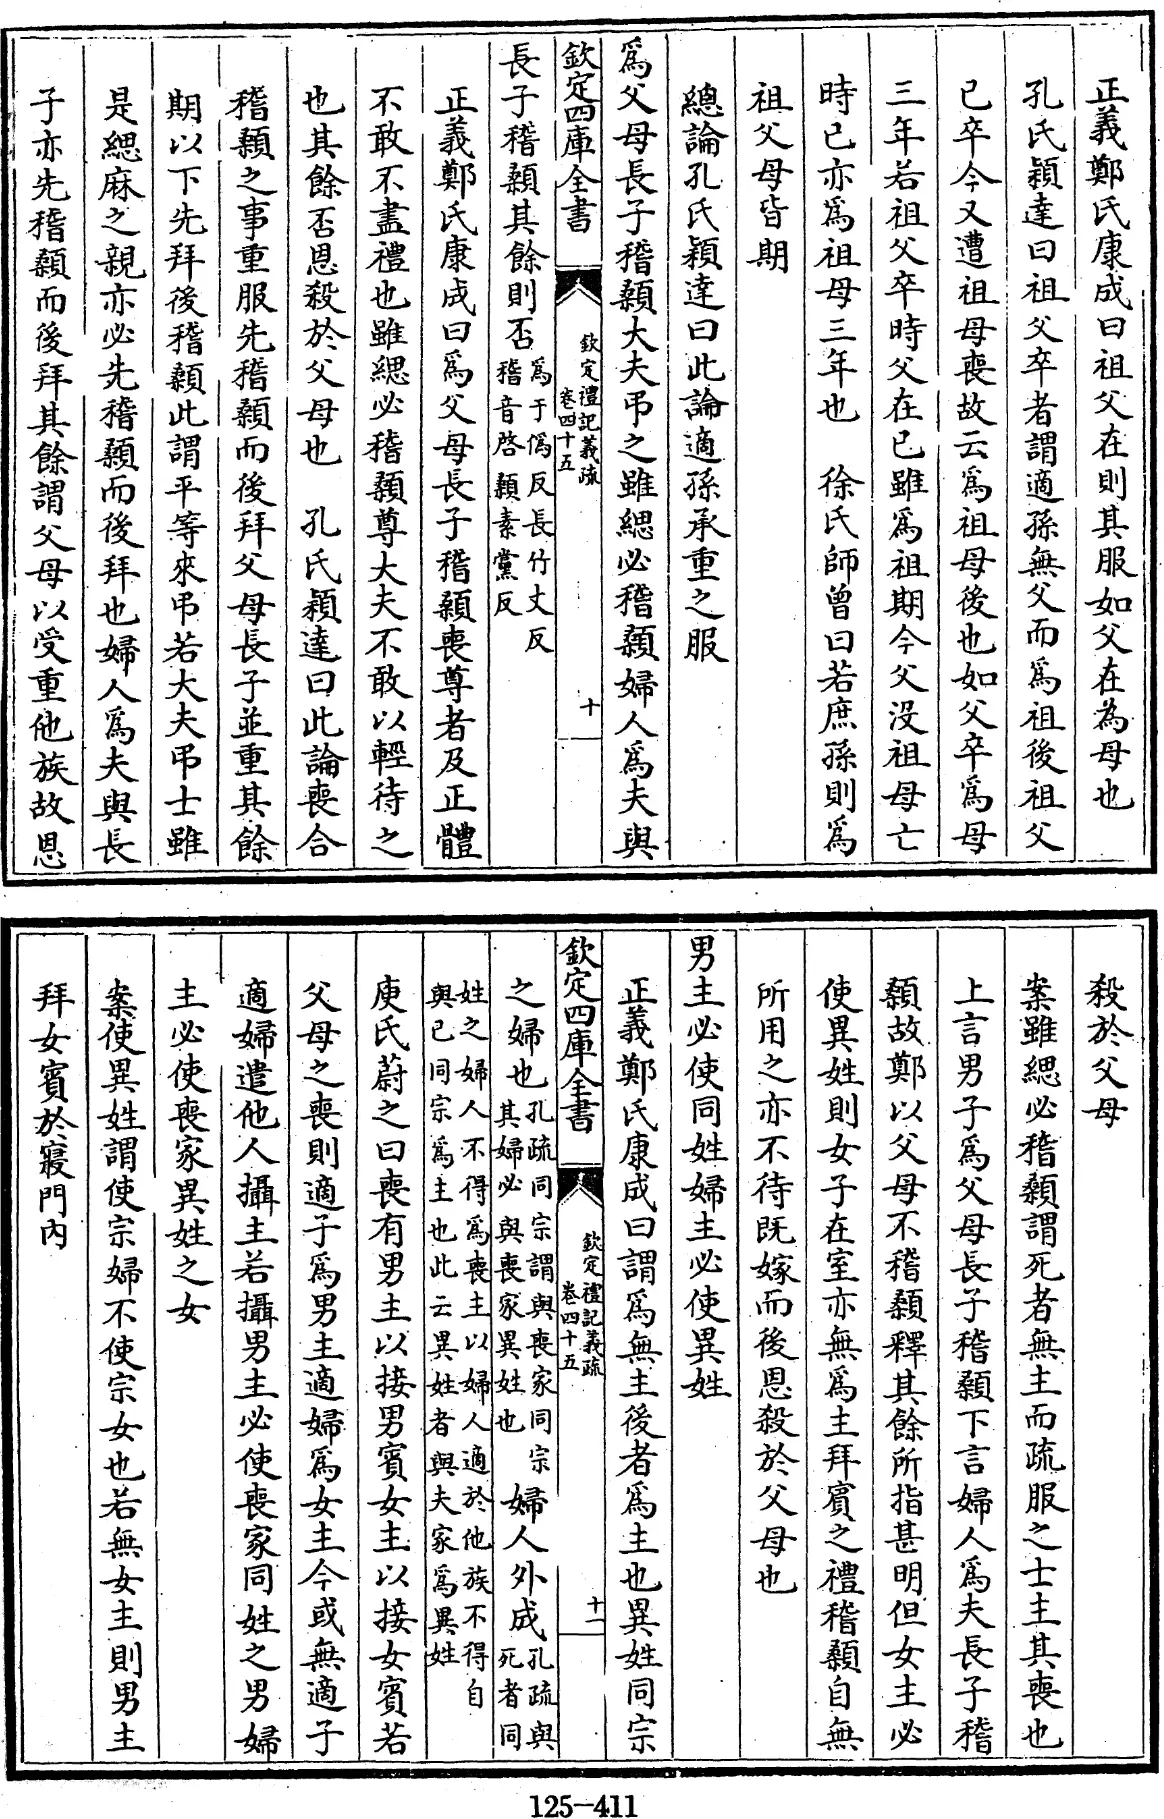 正義鄭氏康成曰祖父在則其服如父在為母也
孔氏穎達曰祖父卒者謂適孫無父而爲祖後祖父
已卒今又遭祖母喪故云爲祖母後也如父卒爲母
三年若祖父卒時父在已雖爲祖期今父没祖母亡
時已亦爲祖母三年也　徐氏師曾曰若庶孫則爲
祖父母皆期
總論孔氏穎達曰此論適孫承重之服
爲父母長子稽顙大夫弔之雖緦必稽顙婦人爲夫與
欽定四庫全書
欽定禮記義疏
卷四十五
十
長子稽顙其餘則否
爲于僞反長竹丈反
稽音啓顙素黨反
正義鄭氏康成曰爲父母長子稽顙喪尊者及正體
不敢不盡禮也雖緦必稽顙尊大夫不敢以輕待之
也其餘否恩殺於父母也　孔氏穎達曰此論喪合
稽顙之事重服先稽顙而後拜父母長子並重其餘
期以下先拜後稽顙此謂平等來弔若大夫弔士雖
是緦麻之親亦必先稽顙而後拜也婦人爲夫與長
子亦先稽顙而後拜其餘謂父母以受重他族故恩
殺於父母
案雖緦必稽顙謂死者無主而疏服之士主其喪也
上言男子爲父母長子稽顙下言婦人爲夫長子稽
顙故鄭以父母不稽顙釋其餘所指甚明但女主必
使異姓則女子在室亦無爲主拜賓之禮稽顙自無
所用之亦不待既嫁而後恩殺於父母也
男主必使同姓婦主必使異姓
正義鄭氏康成曰謂爲無主後者爲主也異姓同宗
欽定四庫全書
欽定禮記義疏
卷四十五
十一
之婦也
孔疏同宗謂與喪家同宗
其婦必與喪家異姓也
婦人外成
孔疏與
死者同
姓之婦人不得爲喪主以婦人適於他族不得自
與已同宗爲主也此云異姓者與夫家爲異姓
庾氏蔚之曰喪有男主以接男賓女主以接女賓若
父母之喪則適子爲男主適婦爲女主今或無適子
適婦遣他人攝主若攝男主必使喪家同姓之男婦
主必使喪家異姓之女
案使異姓謂使宗婦不使宗女也若無女主則男主
拜女賓於寢門內
125-411